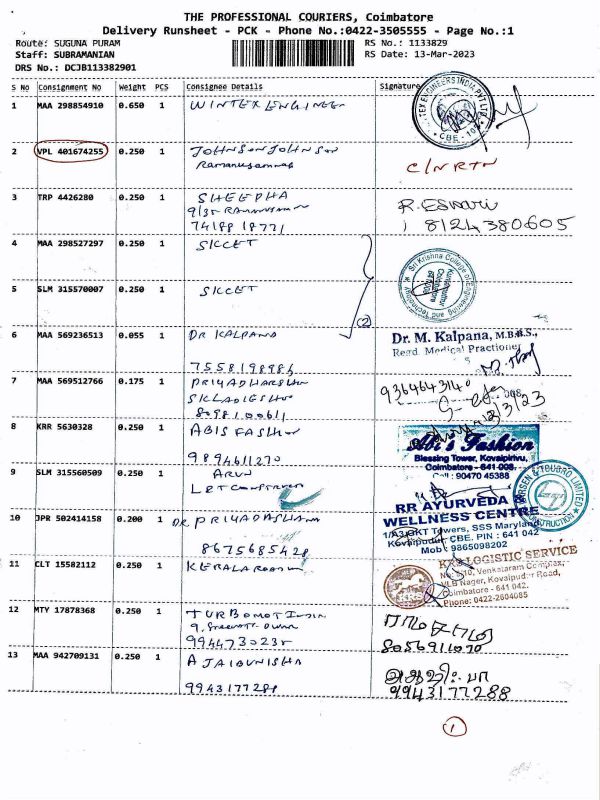 THE PROFESSIONAL COURIERS, Coimbatore
Delivery Runsheet - PCK - Phone No.:0422-3505555 - Page No.:1
Route: SUGUNA PURAM RS No.: 1133829
Staff: SUBRAMANIAN RS Date: 13-Mar-2023
DRS No.: DCJB113382901
S No Consignment No Weight PCS Consignee Details Signature
1 MAA 298854910 0.650 1 WINTEX ENGINEE
TEX ENGINEERS INDIA PVT LTD
CBE
2 VPL 401674255 0.250 1 JOHNSON JOHNSON
C/N RTN
3 TRP 4426280 0.250 1 SHEEPHA
9/35
7418818771
R. ESWARI
8124380605
4 MAA 298527297 0.250 1 SKCET
5 SLM 315570007 0.250 1 SKCET
(2)
Sri Krishna College of Engineering and Technology
Kuniamuthur
Coimbatore
6 MAA 569236513 0.055 1 DR KALPANA
7558198986
Dr. M. Kalpana, M.B.B.S.,
Regd. Medical Practioner
7 MAA 569512766 0.175 1 PRIYADHARSHN
8098100611
9364643140
13/3/23
8 KRR 5630328 0.250 1 ABIS FASHION
9894611270
Abi's Fashion
Blessing Tower, Kovaipirivu,
Coimbatore - 641 008.
Cell : 90470 45388
9 SLM 315560509 0.250 1 ARUN
L&T CONSTRUCN
LARSEN & TOUBRO LIMITED
CONSTRUCTION
10 JPR 502414158 0.200 1 DR. PRIYADASHANA
8675685428
RR AYURVEDA &
WELLNESS CENTRE
1/A3 GKT Towers, SSS Maryland
Kovaipudur CBE. PIN : 641 042
Mob : 9865098202
11 CLT 15582112 0.250 1 KERALA
KRS LOGISTIC SERVICE
Venkataram Complex,
VLB Nager, Kovaipudur Road,
Coimbatore - 641 042.
Phone: 0422-2604085
12 MTY 17878368 0.250 1 TURBOMOT INDIA
9944730235
8056911070
13 MAA 942709131 0.250 1 A JAIBUNISHA
9943177288
9943177288
1